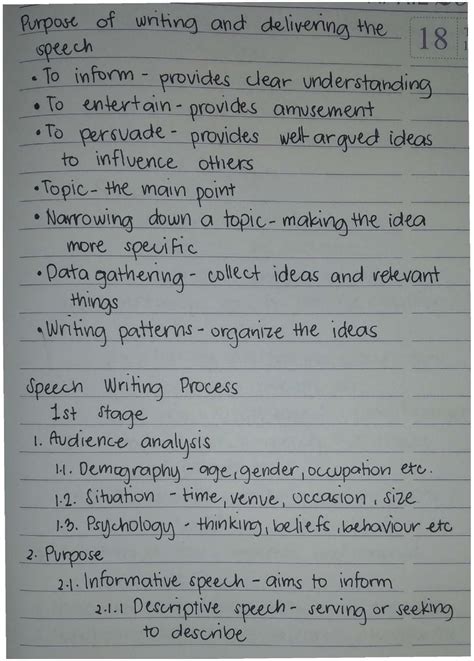 Purpose of writing and delivering the
speech
18
• To inform - provides clear understanding
• To entertain - provides amusement
• To persuade - provides well-argued ideas
to influence others
• Topic - the main point
• Narrowing down a topic - making the idea
more specific
• Data gathering - collect ideas and relevant
things
• Writing patterns - organize the ideas
Speech Writing Process
1st stage
1. Audience analysis
1.1. Demography - age, gender, occupation etc.
1.2. Situation - time, venue, occasion, size
1.3. Psychology - thinking, beliefs, behaviour etc
2. Purpose
2.1. Informative speech - aims to inform
2.1.1 Descriptive speech - serving or seeking
to describe